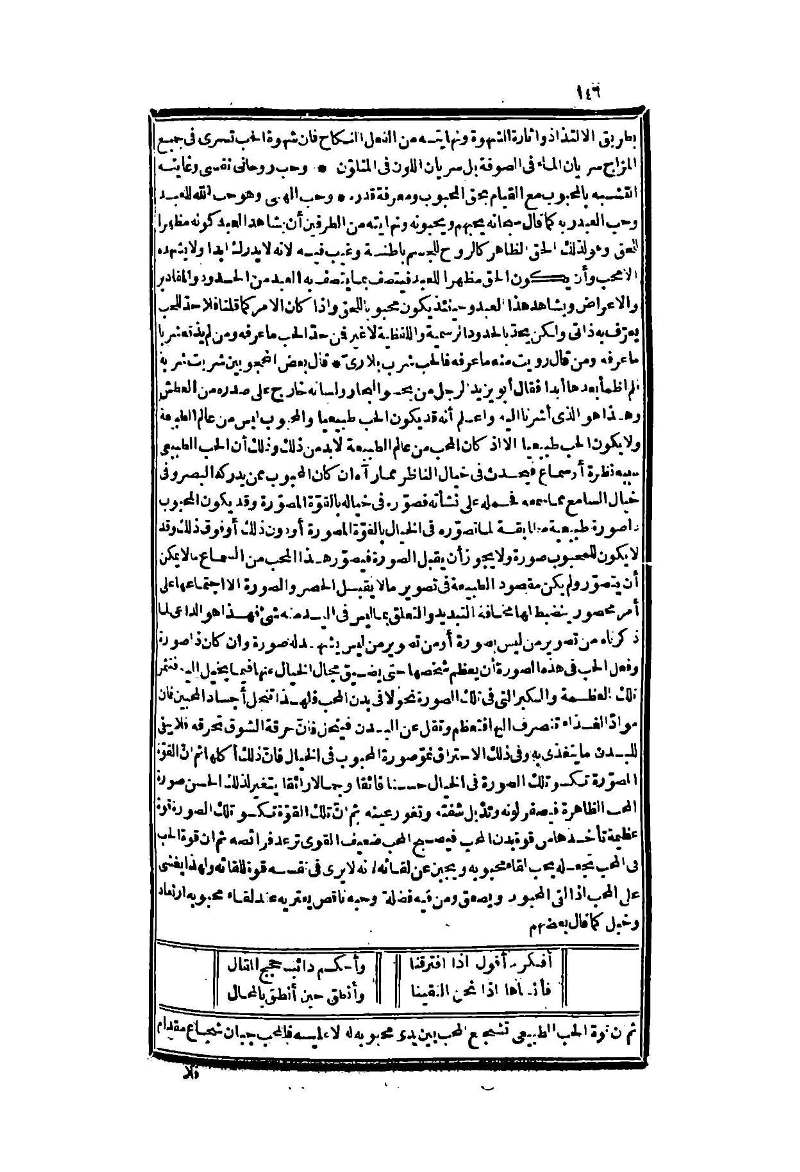 ١٤٦
بطريق الالتذاذ واثارة الشهوة ونهايته من الفعل النكاح فان شهوة الحب تسرى فى جميع
المزاج سريان الماء فى الصوفة بل سريان اللون فى المتلون * وحب روحانى نفسى وغايته
التشبه بالمحبوب مع القيام بحق المحبوب ومعرفة قدره * وحب الهى وهو حب الله للعبد
وحب العبد ربه كما قال سبحانه يحبهم ويحبونه ونهايته من الطرفين أن يشاهد العبد كونه مظهرا
للحق وهو لذلك الحق الظاهر كالروح للجسم باطنه وغيب فيه لانه لا يدرك ابدا ولا يشهده
الا محب وأن يكون الحق مظهرا للعبد فيتصف بما يتصف به العبد من الحدود والمقادير
والاعراض ويشاهد هذا العبد وحينئذ يكون محبوبا للحق واذا كان الامر كما قلنا فلا حد للحب
يعرف به ذاتى ولكن يحد بالحدود الرسمية واللفظية لا غير فن حد الحب ما عرفه ومن لم يذقه شربا
ما عرفه ومن قال رويت منه ما عرفه فالحب شرب بلا رى * قال بعض المحجوبين شربت شربة
فلم اظمأ بعدها أبدا فقال أبو يزيد الرجل من يحسو البحار ولسانه خارج على صدره من العطش
وهذا هو الذى أشرنا اليه واعلم أنه قد يكون الحب طبيعيا والمحبوب ليس من عالم الطبيعة
ولا يكون الحب طبيعيا الا اذ كان المحب من عالم الطبيعة لابد من ذلك وذلك أن الحب الطبيعى
سببه نظرة أو سماع فيحدث فى خيال الناظر مما رآه ان كان المحبوب ممن يدركه البصر وفى
خيال السامع مما سمعه فحمله على نشأته فصوره فى خياله بالقوة المصورة وقد يكون المحبوب
ذا صورة طبيعية مطابقة لما تصوره فى الخيال بالقوة المصورة أو دون ذلك أو فوق ذلك وقد
لا يكون للمحبوب صورة ولا يجوز أن يقبل الصورة فيصور هذا المحب من السماع ما لا يمكن
أن يتصور ولم يكن مقصود الطبيعة فى تصوير ما لا يقبل الحصر والصورة الا اجتماعها على
أمر محصور ينضبط لها مخافة التبديد والتعلق بما ليس فى اليد منه شئ فهذا هو الداعى لما
ذكرناه من تصوير من ليس بصورة أو من تصوير من ليس يشهد له صورة وان كان ذا صورة
وفعل الحب فى هذه الصورة أن يعظم شخصها حتى يضيق محال الخيال عنها فيما يخيل اليه فتثمر
تلك العظمة والكبر التى فى تلك الصورة نحولا فى بدن المحب فلهذا تنحل أجساد المحبين فان
مواد الغذاء تنصرف اليها فتعظم وتقل عن البدن فينحل فان حرقة الشوق تحرقه فلا يبقى
للبدن ما يتغذى به وفى ذلك الاحتراق نمو صورة المحبوب فى الخيال فان ذلك أكلها ثم ان القوة
المصورة تكسو تلك الصورة فى الخيال حسنا فائقا وجمالا رائقا يتغير لذلك الحسن صورة
المحب الظاهرة فيصفر لونه وتذبل شفته وتغور عينه ثم ان تلك القوة تكسو تلك الصورة قوة
عظيمة تأخذها من قوة بدن المحب فيصبح المحب ضعيف القوى ترعد فرائصه ثم ان قوة الحب
فى المحب تجعله يحب لقاء محبوبه ويجبن عن لقائه لانه لا يرى فى نفسه قوة للقائه ولهذا يغشى
على المحب اذا لقى المحبوب ويصعق ومن فيه فضلة وحبه ناقص يعتريه عند لقاء محبوبه ارتعاد
وخبل كما قال بعضهم
أفكر ما أقول اذا افترقنا وأحكم دائبا حجج المقال
فأنساها اذا نحن التقينا وأنطق حين أنطق بالمحال
ثم ان قوة الحب الطبيعى تشجع المحب بين يدى محبوبه له لا عليه فالمحب جبان شجاع مقدام
فلا